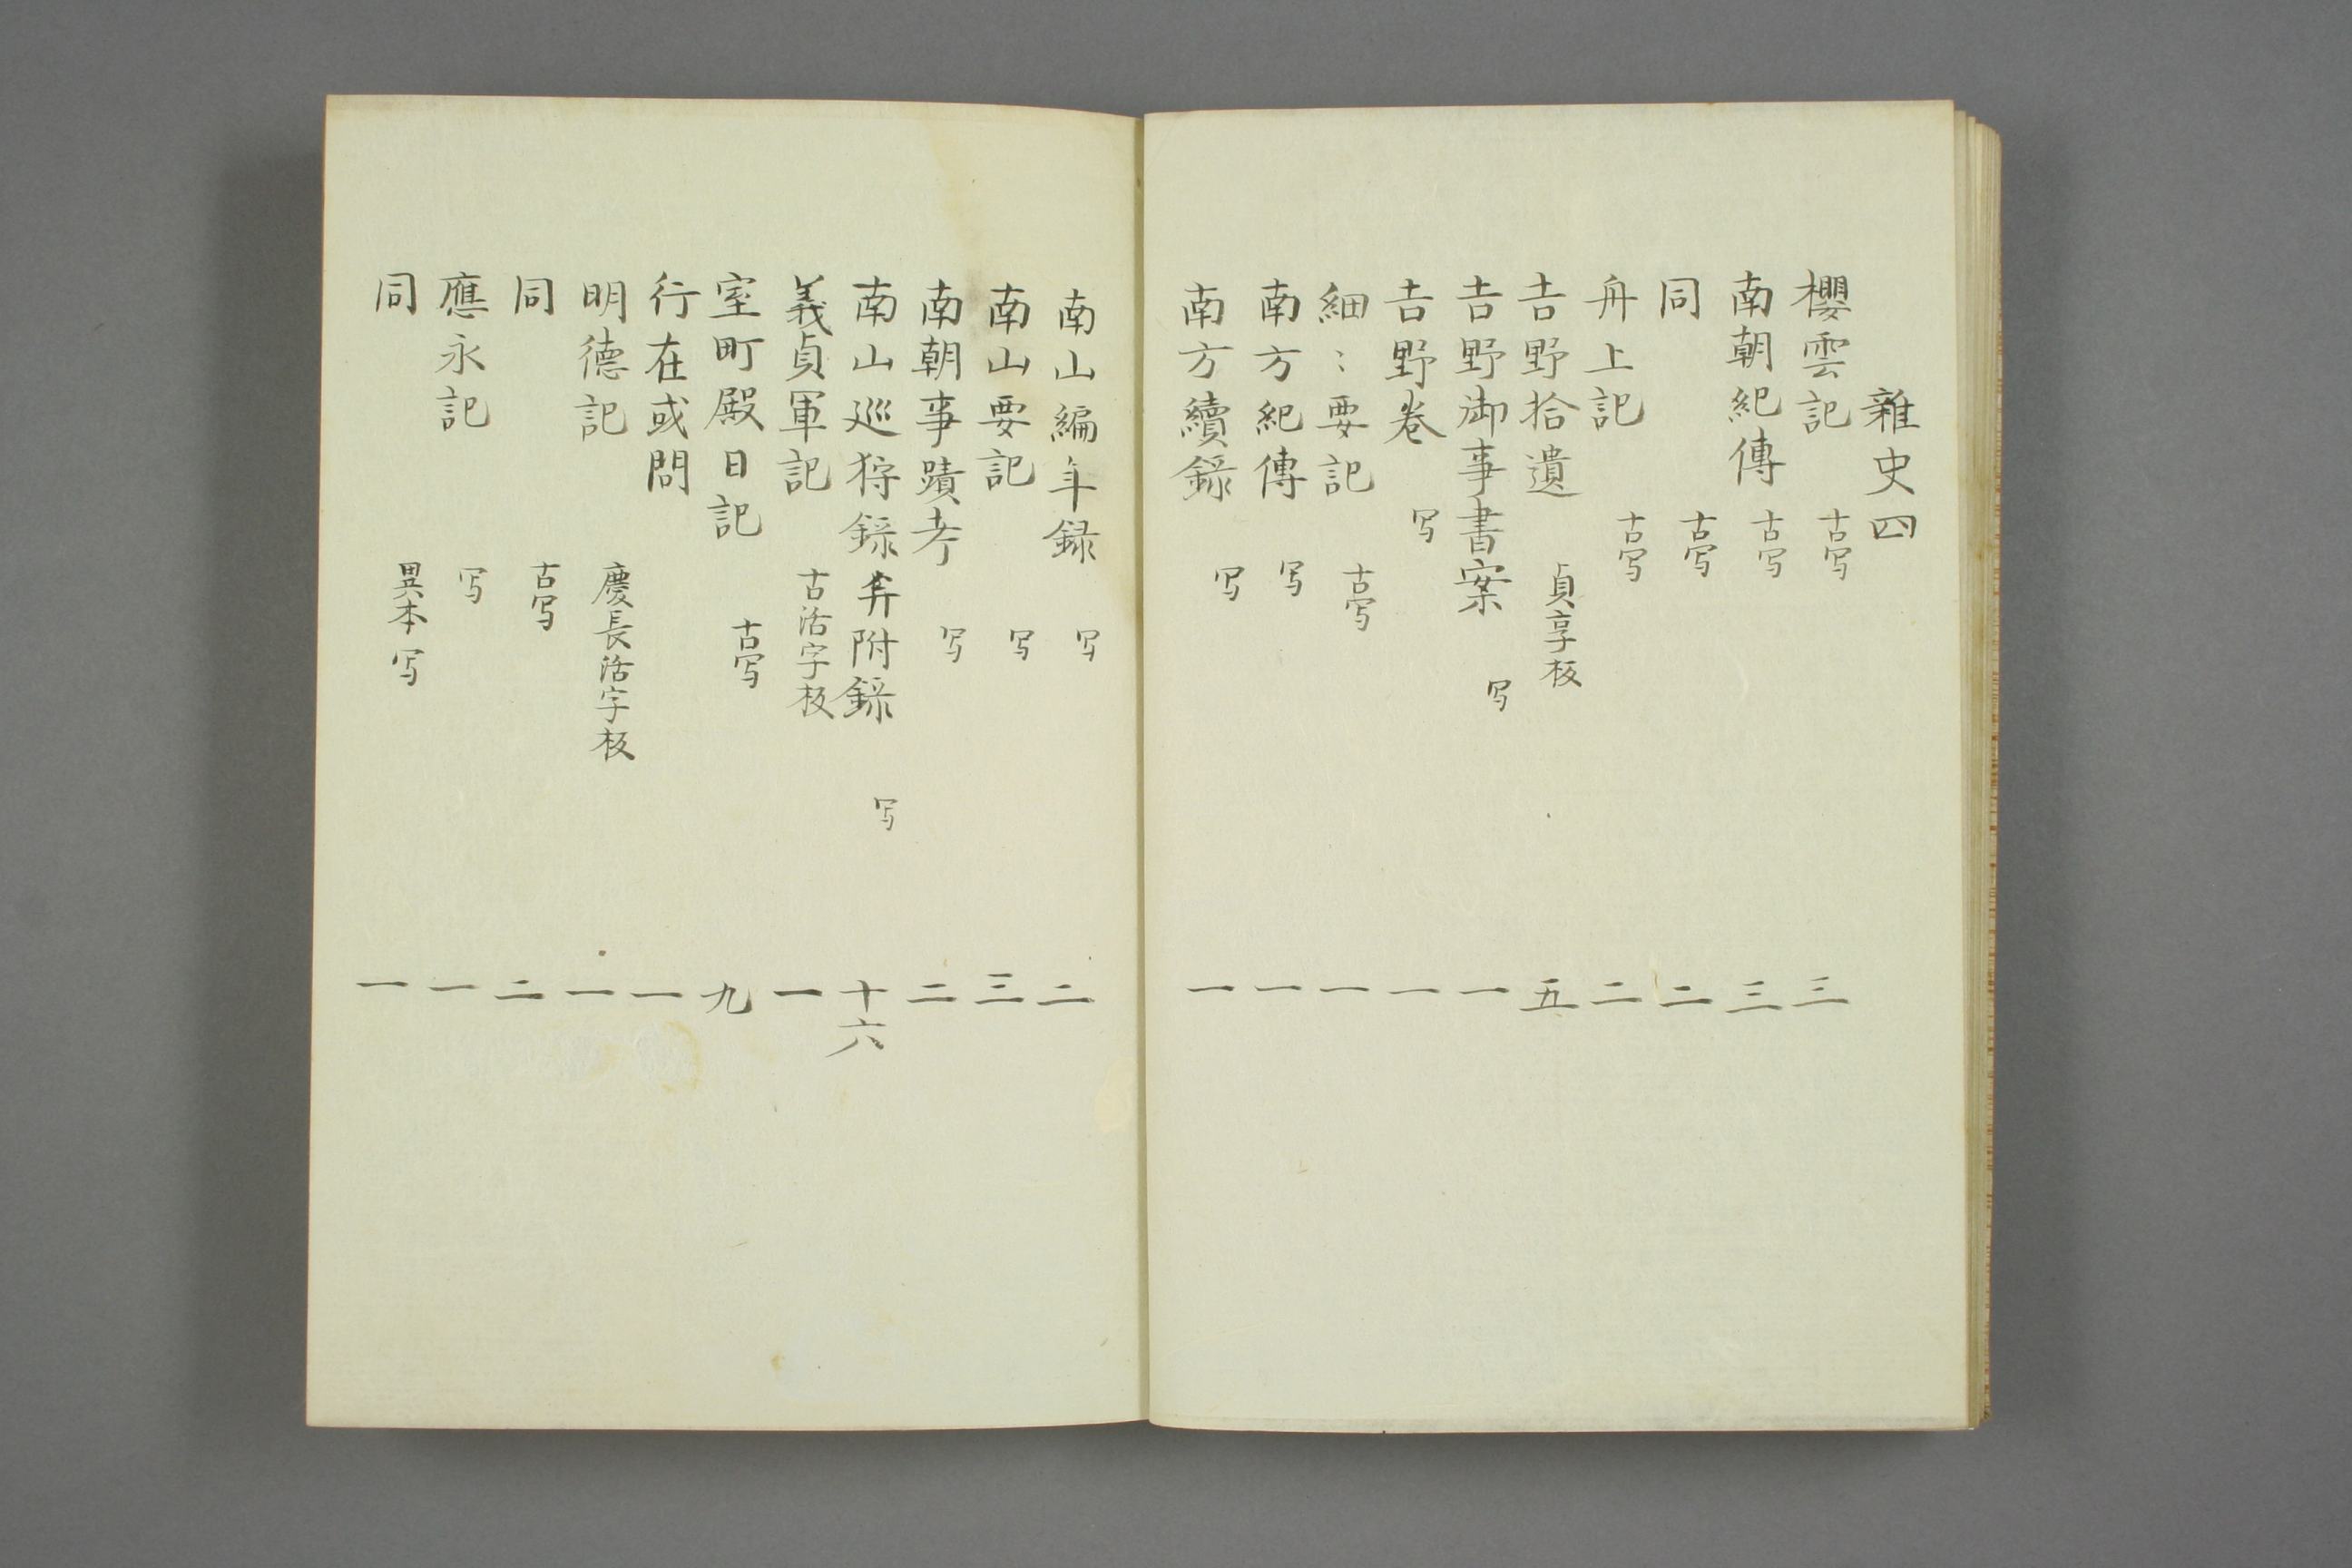 雜史四
櫻雲記 古写 三
南朝紀傳 古写 三
同 古写 二
舟上記 古写 二
吉野拾遺 貞享板 五
吉野御事書案 写 一
吉野巻 写 一
細〻要記 古写 一
南方紀傳 写 一
南方續録 写 一
南山編年録 写 二
南山要記 写 三
南朝事蹟考 写 二
南山巡狩録并附録 写 十六
義貞軍記 古活字板 一
室町殿日記 古写 九
行在或問 一
明德記 慶長活字板 一
同 古写 二
應永記 写 一
同 異本写 一